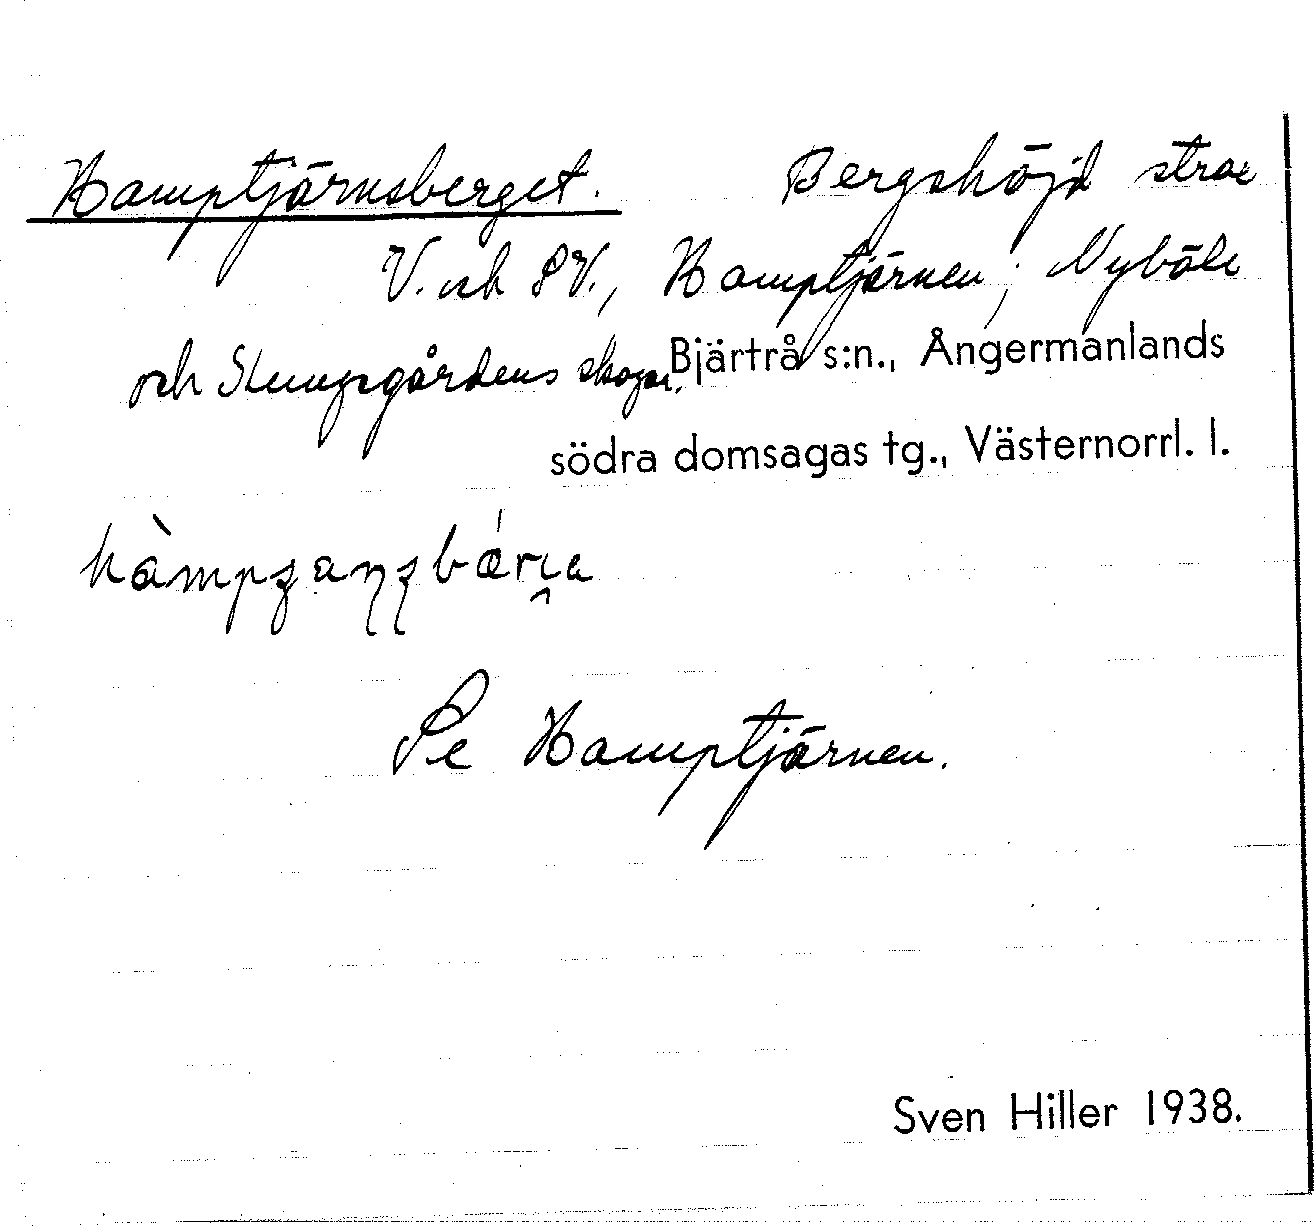 Hamptjärnsberget. Bergshöjd strax
V. och SV., Hamptjärnen; Nyböle
och Skumpgårdens skogar. Bjärtrå s:n., Ångermanlands
södra domsagas tg., Västernorrl. l.
Se Hamptjärnen.
Sven Hiller 1938.